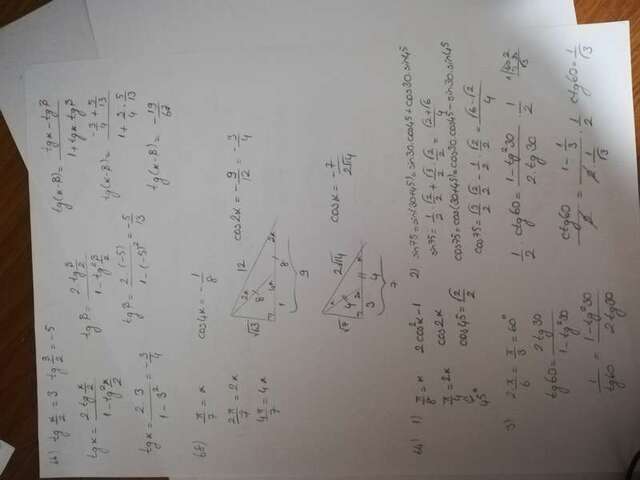 66) tg x/2 = 3 tg β/2 = -5
tgx = 2tg x/2 / 1-tg² x/2
tgβ = 2tg β/2 / 1-tg² β/2
tg(x-β) = tgx - tgβ / 1+tgx tgβ
tgx = 2·3 / 1-3² = -3/4
tgβ = 2·(-5) / 1-(-5)²
tg(x-β) = -19/67
π/7 = x
cos4x = -1/8
2π/7 = 2x
4π/7 = 4x
cos2x = -9/12 = -3/4
12
8
1 8
9
cosx = -7/2√14
2√14
4
3 4
7
64) 1) π/8 = x 2cos²x-1
π/4 = 2x cos2x
45° cos45 = √2/2
2) sin75 = sin(30+45) = sin30·cos45 + cos30·sin45
sin75 = 1/2 √2/2 + √3/2 √2/2 = √2+√6/4
cos75 = cos(30+45) = cos30·cos45 - sin30·sin45
cos75 = √3/2 √2/2 - 1/2 √2/2 = √6-√2/4
3) 2π/6 = π/3 = 60°
tg60 = 2tg30 / 1-tg²30
1/tg60 = 1-tg²30 / 2tg30
1/2 · ctg60 = 1-tg²30 / 2·tg30 · 1/2
ctg60 / 2 = 1-1/3 / 2·1/√3 · 1/2 ctg60 = 1/√3